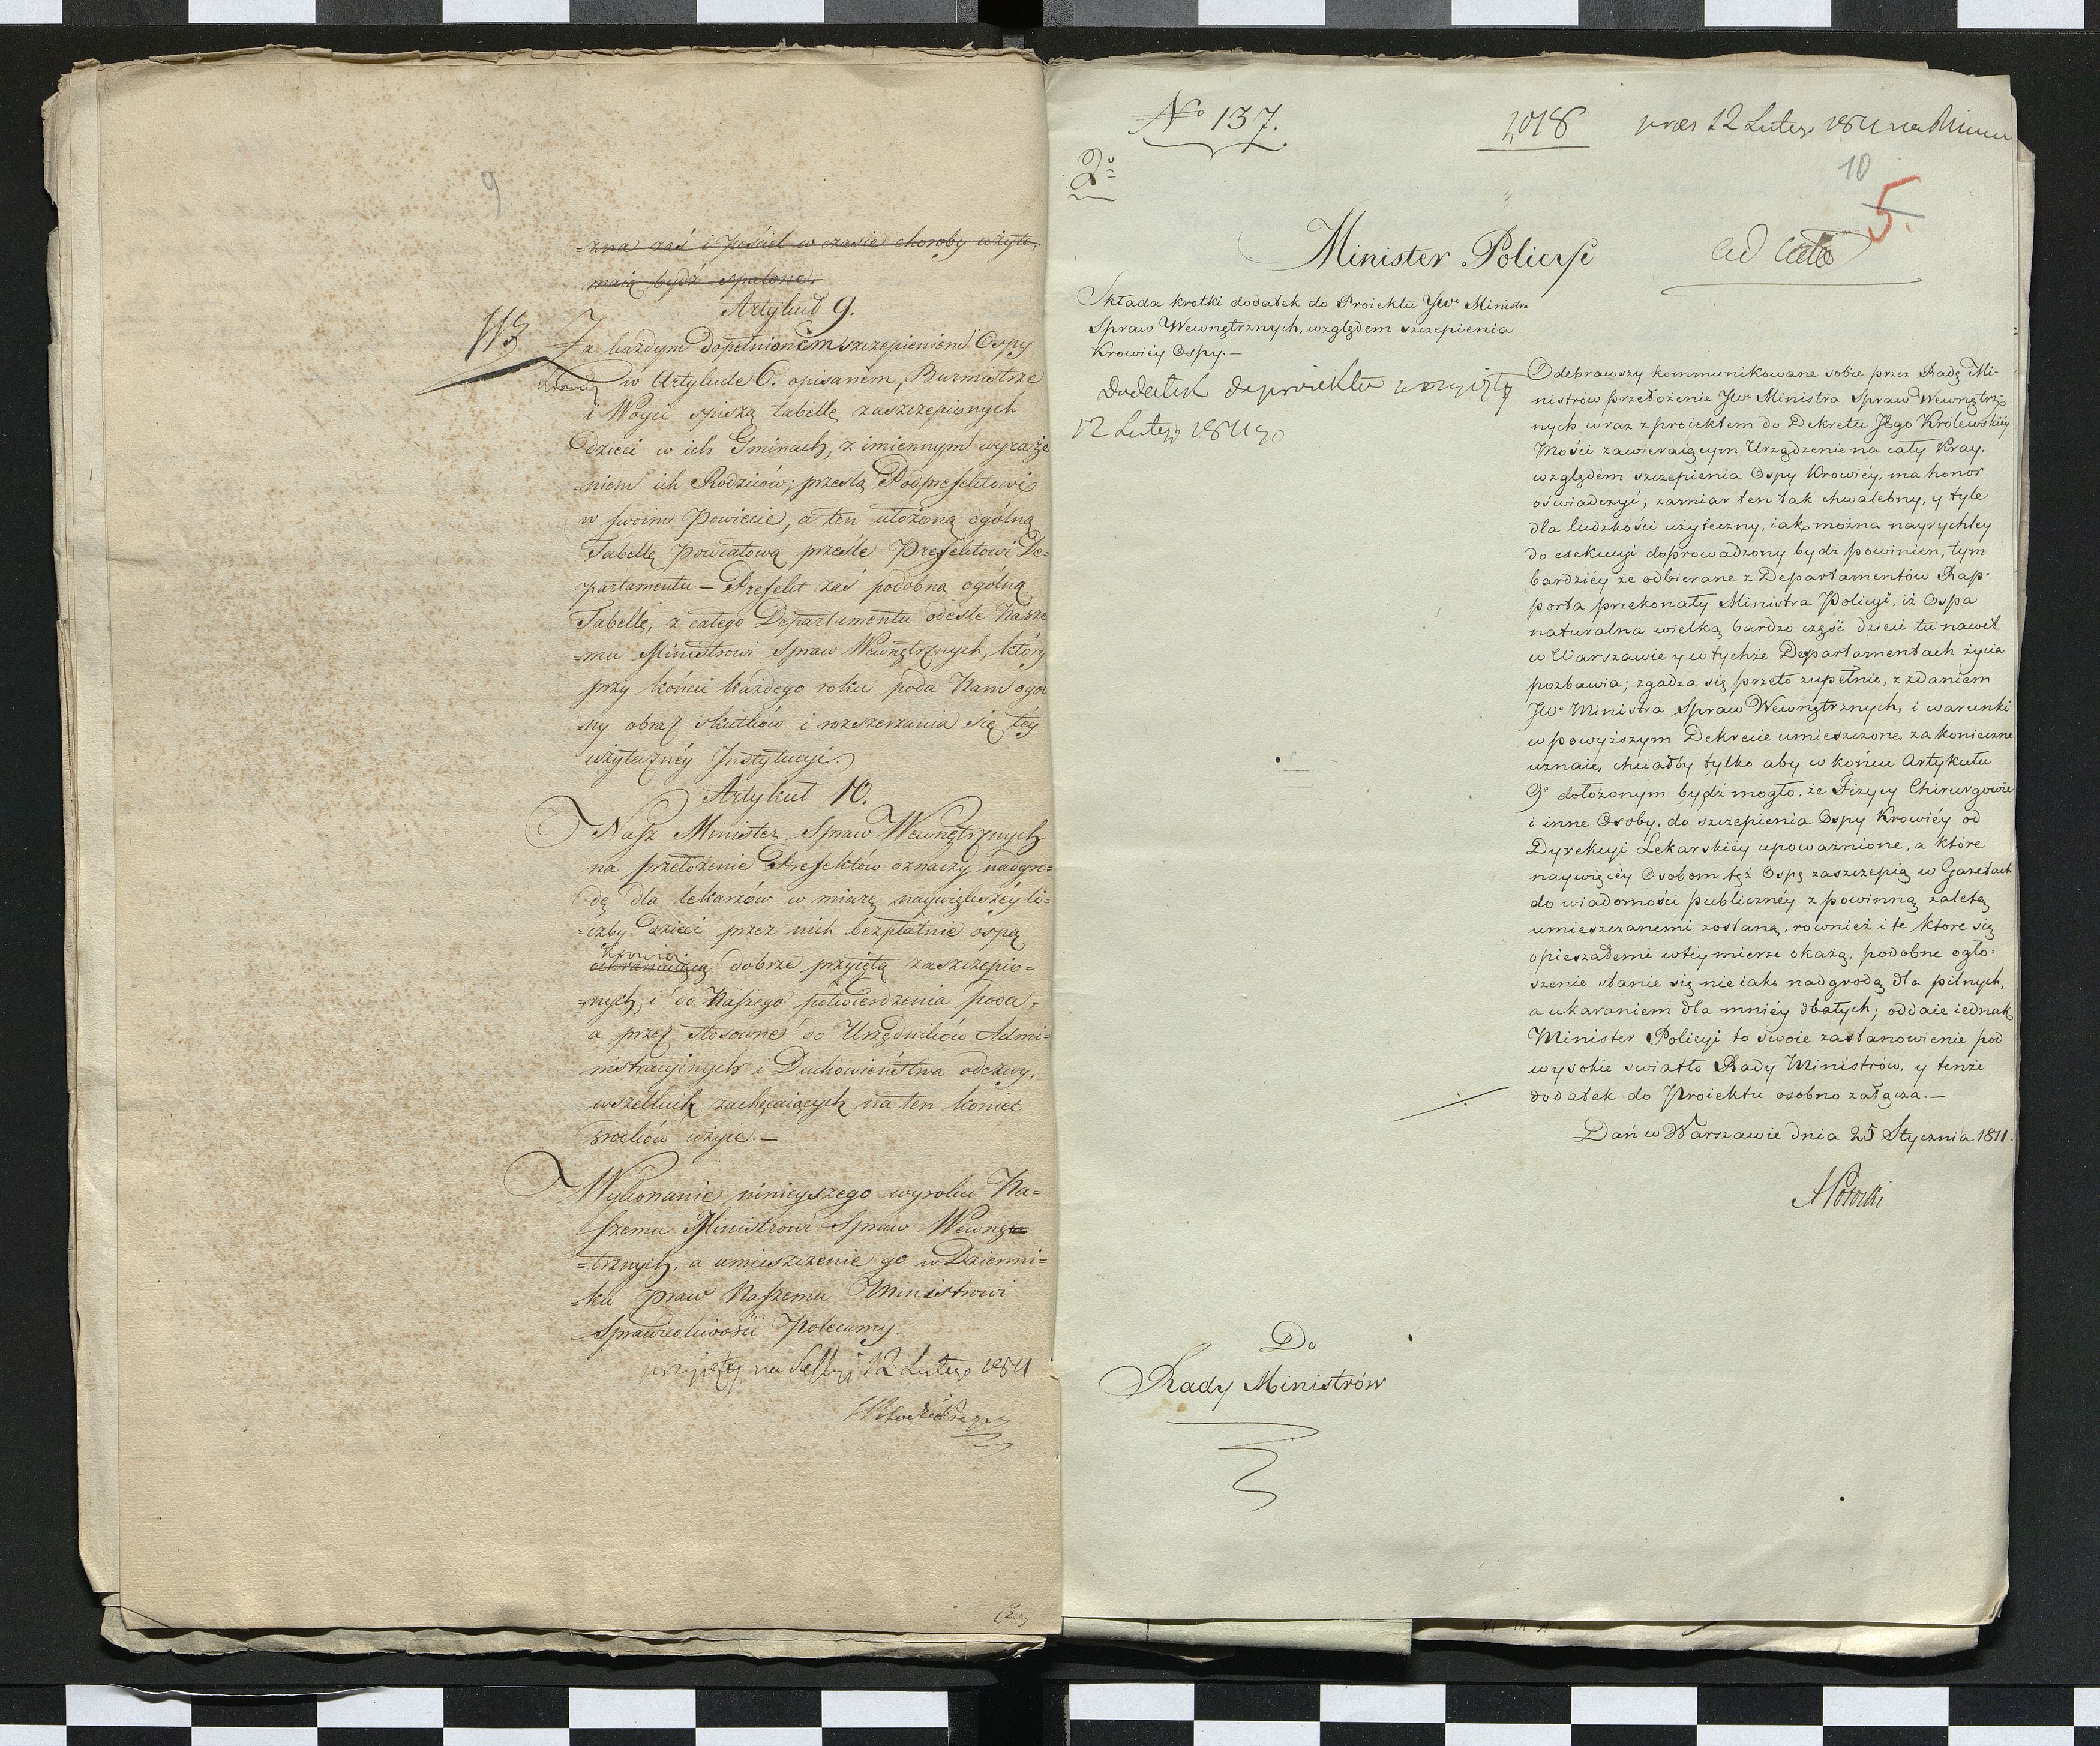 9
-zna zaś i pościel w czasie choroby użyte,
maią bydź spalone.
Artykuł 9.
Za każdym dopełnionem szczepieniem Ospy
Krowiey w Artykule 6. opisanem, Burmistrze
i Woyci spiszą tabellę zaszczepionych
dzieci w ich Gminach, z imiennym wyraże
-niem ich Rodziców; prześlą Podprefektowi
w swoim Powiecie, a ten ułożoną ogólną
Tabellę Powiatową prześle Prefektowi De-
partamentu – Prefekt zaś podobną ogólną
Tabellę, z całego Departamentu odeśle Nasze
-mu Ministrowi Spraw Wewnętrznych, który
przy końcu każdego roku poda Nam ogól
-ny obraz skutków i rozszerzania się téy
użytecznéy Instytucyi.
Artykuł 10.
Nasz Minister Spraw Wewnętrznych
na przełożenie Prefektów oznaczy nadgro-
-dę dla lekarzów w miarę naywiększéy li-
-czby dzieci przez nich bezpłatnie ospą
krowią
ochraniaiącą dobrze przyiętą zaszczepio-
-nych, i do Naszego potwierdzenia poda,
a przez stosowne do Urzędników Admi-
nistracyinych i Duchowieństwa odezwy,
wszelkich zachęcaiących na ten koniec
srodków użyie.–
Wykonanie ninieyszego wyroku Na-
szemu Ministrowi Spraw Wewnę
-trznych, a umieszczenie go w Dzienni-
-ku praw Naszemu Ministrowi
Sprawiedliwości Polecamy.
przyięty na Sessyi 12 Lutego 1811
No 137.
2018
præs 12 Lutego 1811
2o
10
5.
Minister Policyi
ad acta
Składa krotki dodatek do Proiektu JWo Ministra
Spraw Wewnętrznych, względem szczepienia
Krowiéy Ospy.–
Dodatek do proiektu przyięty
12 Lutego 1811 go
Odebrawszy kommunikowane sobie przez Radę Mi-
nistrów przełożenie JWo Ministra Spraw Wewnętrz-
nych wraz z proiektem do Dekretu Jego Królewskiéy
Mości zawieraiącym Urządzenie na cały Kray,
względem szczepienia Ospy Krowiéy, ma honor
oświadczyć; zamiar ten tak chwalebny, y tyle
dla ludzkości użyteczny, iak można nayrychley
do exekucyi doprowadzony bydź powinien, tym
bardziéy że odbierane z Departamentów Rap-
porta przekonały Ministra Policyi, iż Ospa
naturalna wielką bardzo część dzieci tu nawet
w Warszawie y w tychże Departamentach życia
pozbawia; zgadza się przeto zupełnie, z zdaniem
JWo Ministra Spraw Wewnętrznych, i warunki
w powyższym Dekrecie umieszczone za konieczne
uznaie, chciałby tylko aby w końcu Artykułu
9o dołożonym bydź mogło, że Fizycy Chirurgowie
i inne Osoby, do szczepienia Ospy Krowiéy od
Dyrekcyi Lekarskiéy upoważnione, a które
naywięcéy Osobom téż Ospę zaszczepią w Gazetach
do wiadomości publicznéy z powinną zaletą
umieszczanemi zostaną, również i te które się
opieszałemi w téy mierze okażą, podobne ogło-
szenie stanie się nieiako nadgrodą dla pilnych,
a ukaraniem dla mniéy dbałych; oddaie iednak
Minister Policyi to swoie zastanowienie pod
wysokie swiatło Rady Ministrów, y tenże
dodatek do Proiektu osobno załącza.–
Dań w Warszawie dnia 25 Stycznia 1811.
APotocki
Do
Rady Ministrów